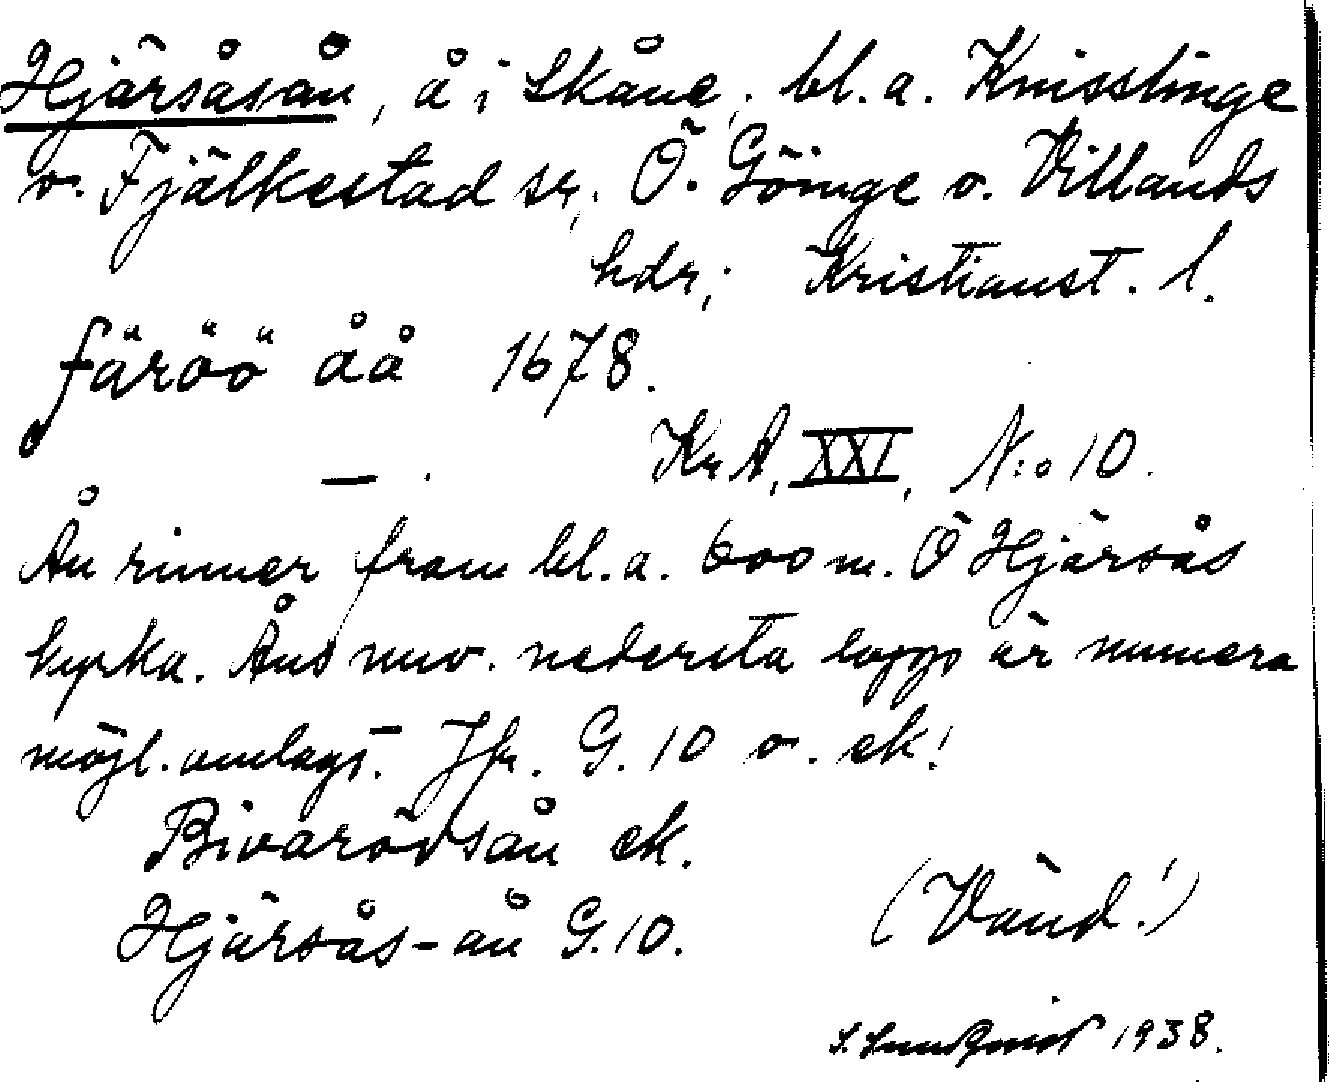 Hjärsåsån, å i Skåne, bl.a. Knisslinge
o. Fjälkestad sr, Ö. Göinge o. Villands
hdr; Kristianst. l.
färöö åå 1678.
— . KrA, XXI, N:o 10.
Ån rinner fram bl.a. 600 m. Ö Hjärsås
kyrka. Åns nuv. nedersta lopp är numera
möjl. omlagt. — Jfr. G. 10 o. ek!
Bivarödsån ek.
Hjärsås-ån G.10.
(Vänd!)
S. Lundqvist 1938.